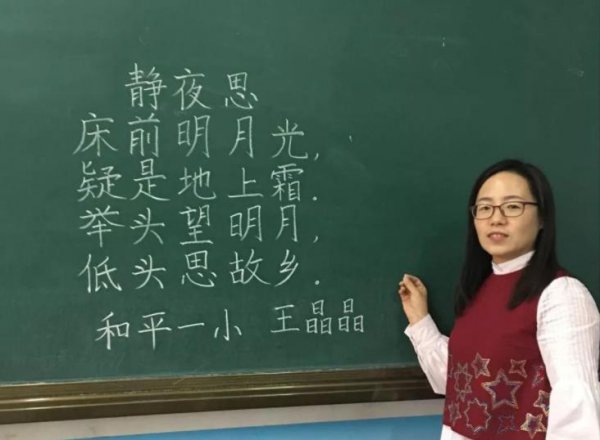 静夜思
床前明月光，
疑是地上霜．
举头望明月，
低头思故乡．
和平一小 王晶晶